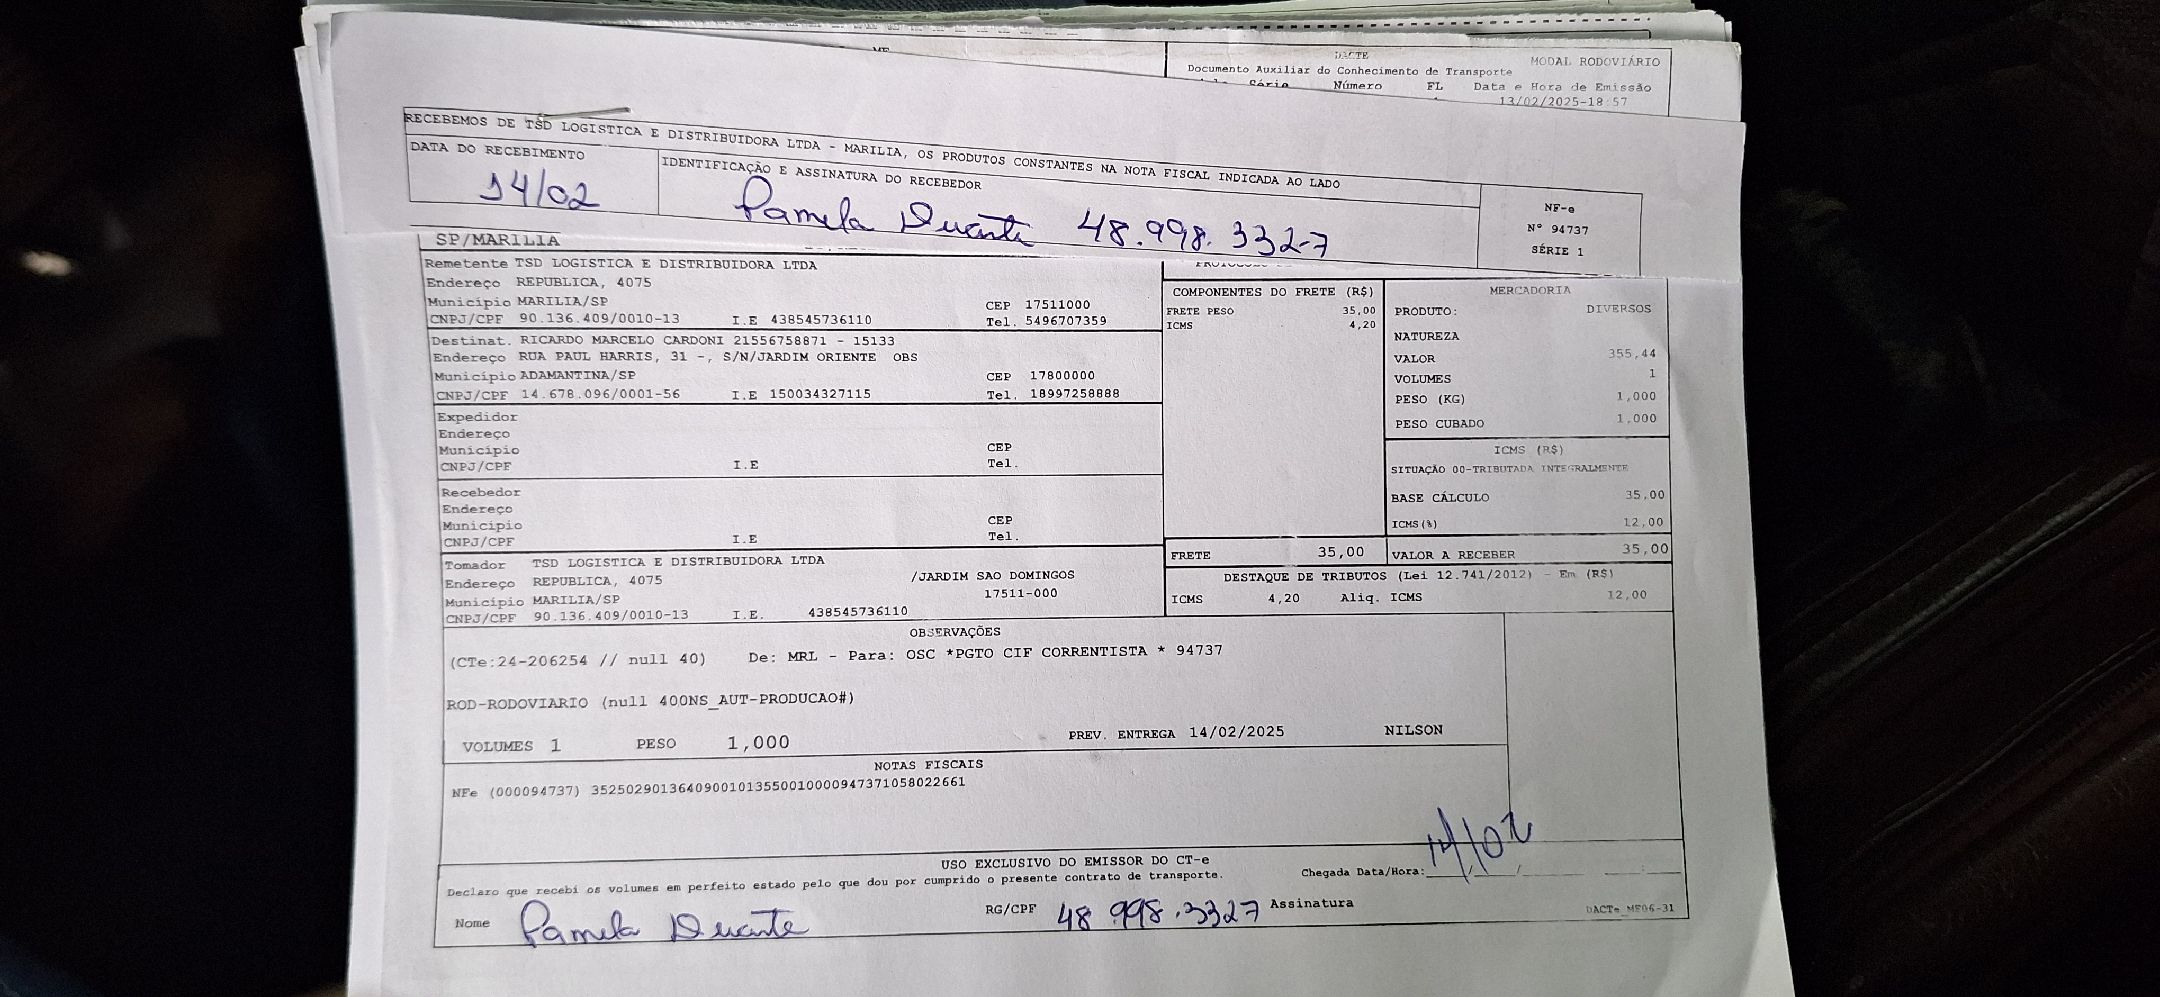 DACTE
MODAL RODOVIÁRIO
Documento Auxiliar do Conhecimento de Transporte
Série Número FL Data e Hora de Emissão
13/02/2025-18:57
RECEBEMOS DE TSD LOGISTICA E DISTRIBUIDORA LTDA - MARILIA, OS PRODUTOS CONSTANTES NA NOTA FISCAL INDICADA AO LADO
DATA DO RECEBIMENTO IDENTIFICAÇÃO E ASSINATURA DO RECEBEDOR
14/02 Pamela Duarte 48.998.332-7
NF-e
Nº 94737
SÉRIE 1
SP/MARILIA
Remetente TSD LOGISTICA E DISTRIBUIDORA LTDA
Endereço REPUBLICA, 4075
Município MARILIA/SP CEP 17511000
CNPJ/CPF 90.136.409/0010-13 I.E 438545736110 Tel. 5496707359
Destinat. RICARDO MARCELO CARDONI 21556758871 - 15133
Endereço RUA PAUL HARRIS, 31 -, S/N/JARDIM ORIENTE OBS
Município ADAMANTINA/SP CEP 17800000
CNPJ/CPF 14.678.096/0001-56 I.E 150034327115 Tel. 18997258888
Expedidor
Endereço
Município CEP
CNPJ/CPF I.E Tel.
Recebedor
Endereço
Município CEP
CNPJ/CPF I.E Tel.
Tomador TSD LOGISTICA E DISTRIBUIDORA LTDA
Endereço REPUBLICA, 4075 /JARDIM SAO DOMINGOS
Município MARILIA/SP 17511-000
CNPJ/CPF 90.136.409/0010-13 I.E. 438545736110
COMPONENTES DO FRETE (R$)
FRETE PESO 35,00
ICMS 4,20
MERCADORIA
PRODUTO: DIVERSOS
NATUREZA
VALOR 355,44
VOLUMES 1
PESO (KG) 1,000
PESO CUBADO 1,000
ICMS (R$)
SITUAÇÃO 00-TRIBUTADA INTEGRALMENTE
BASE CÁLCULO 35,00
ICMS(%) 12,00
FRETE 35,00 VALOR A RECEBER 35,00
DESTAQUE DE TRIBUTOS (Lei 12.741/2012) - Em (R$)
ICMS 4,20 Aliq. ICMS 12,00
OBSERVAÇÕES
(CTe:24-206254 // null 40) De: MRL - Para: OSC *PGTO CIF CORRENTISTA * 94737
ROD-RODOVIARIO (null 400NS_AUT-PRODUCAO#)
VOLUMES 1 PESO 1,000 PREV. ENTREGA 14/02/2025 NILSON
NOTAS FISCAIS
NFe (000094737) 35250290136409001013550010000947371058022661
USO EXCLUSIVO DO EMISSOR DO CT-e
Declaro que recebi os volumes em perfeito estado pelo que dou por cumprido o presente contrato de transporte. Chegada Data/Hora: 14/02
Nome Pamela Duarte RG/CPF 48.998.3327 Assinatura
DACTe_MF06-31